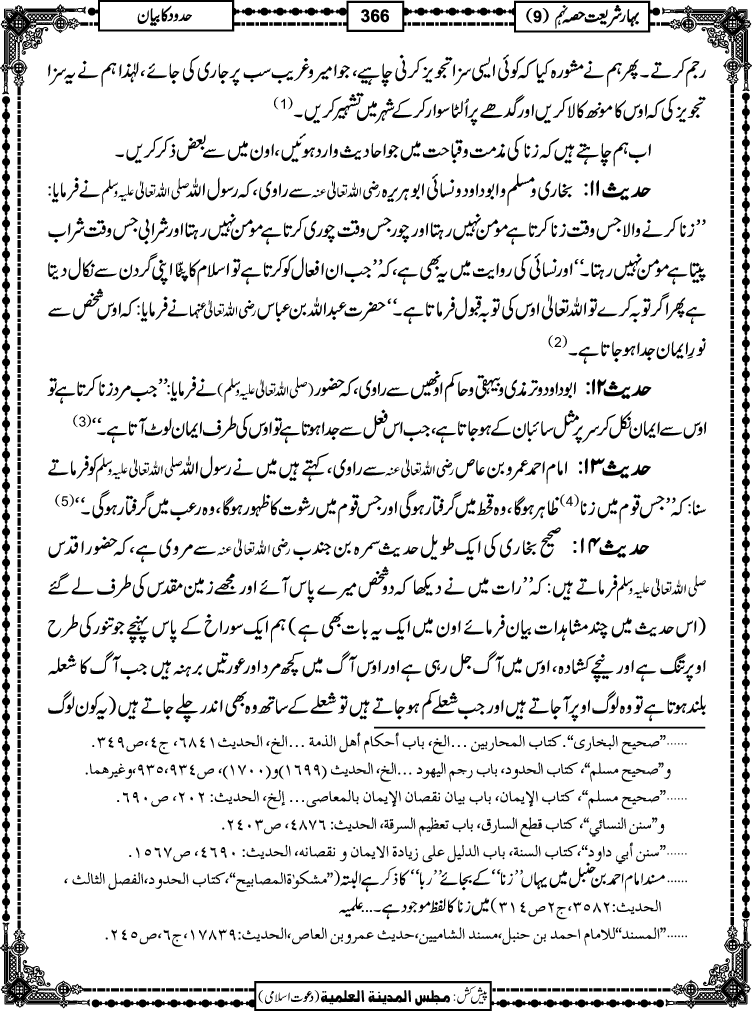 بہار شریعت حصہ نہم (9)
366
حدود کا بیان
رجم کرتے۔ پھر ہم نے مشورہ کیا کہ کوئی ایسی سزا تجویز کرنی چاہیے، جو امیر وغریب سب پر جاری کی جائے، لہٰذا ہم نے یہ سزا
تجویز کی کہ اوس کا مونھ کالا کریں اور گدھے پر اُلٹا سوار کر کے شہر میں تشہیر کریں۔(1)
اب ہم چاہتے ہیں کہ زنا کی مذمت و قباحت میں جو احادیث وارد ہوئیں، اون میں سے بعض ذکر کریں۔
حدیث ۱۱: بخاری و مسلم و ابو داود و نسائی ابو ہریرہ رضی اللہ تعالیٰ عنہ سے راوی، کہ رسول اللہ صلی اللہ تعالیٰ علیہ وسلم نے فرمایا:
’’زنا کرنے والا جس وقت زنا کرتا ہے مومن نہیں رہتا اور چور جس وقت چوری کرتا ہے مومن نہیں رہتا اور شرابی جس وقت شراب
پیتا ہے مومن نہیں رہتا۔‘‘ اور نسائی کی روایت میں یہ بھی ہے، کہ ’’جب ان افعال کو کرتا ہے تو اسلام کا پٹّا اپنی گردن سے نکال دیتا
ہے پھر اگر توبہ کرے تو اللہ تعالیٰ اوس کی توبہ قبول فرماتا ہے۔‘‘ حضرت عبداللہ بن عباس رضی اللہ تعالیٰ عنہما نے فرمایا: کہ اوس شخص سے
نورِ ایمان جدا ہو جاتا ہے۔(2)
حدیث ۱۲: ابو داود و ترمذی و بیہقی و حاکم اونھیں سے راوی، کہ حضور (صلی اللہ تعالیٰ علیہ وسلم) نے فرمایا: ’’جب مرد زنا کرتا ہے تو
اوس سے ایمان نکل کر سر پر مثل سائبان کے ہو جاتا ہے، جب اس فعل سے جدا ہوتا ہے تو اوس کی طرف ایمان لوٹ آتا ہے۔‘‘(3)
حدیث ۱۳: امام احمد عمرو بن عاص رضی اللہ تعالیٰ عنہ سے راوی، کہتے ہیں میں نے رسول اللہ صلی اللہ تعالیٰ علیہ وسلم کو فرماتے
سنا: کہ ’’جس قوم میں زنا(4) ظاہر ہوگا، وہ قحط میں گرفتار ہوگی اور جس قوم میں رشوت کا ظہور ہوگا، وہ رعب میں گرفتار ہوگی۔‘‘(5)
حدیث ۱۴: صحیح بخاری کی ایک طویل حدیث سمرہ بن جندب رضی اللہ تعالیٰ عنہ سے مروی ہے، کہ حضور اقدس
صلی اللہ تعالیٰ علیہ وسلم فرماتے ہیں: کہ ’’رات میں نے دیکھا کہ دو شخص میرے پاس آئے اور مجھے زمین مقدس کی طرف لے گئے
(اس حدیث میں چند مشاہدات بیان فرمائے اون میں ایک یہ بات بھی ہے) ہم ایک سوراخ کے پاس پہنچے جو تنور کی طرح
اوپر تنگ ہے اور نیچے کشادہ، اوس میں آگ جل رہی ہے اور اوس آگ میں کچھ مرد اور عورتیں برہنہ ہیں جب آگ کا شعلہ
بلند ہوتا ہے تو وہ لوگ اوپر آ جاتے ہیں اور جب شعلے کم ہو جاتے ہیں تو شعلے کے ساتھ وہ بھی اندر چلے جاتے ہیں (یہ کون لوگ
......”صحیح البخاری“. کتاب المحاربین ...الخ، باب أحکام أهل الذمة ...الخ، الحدیث ٦٨٤١، ج٤،ص٣٤٩.
و”صحیح مسلم“، کتاب الحدود، باب رجم الیهود ...الخ، الحدیث (١٦٩٩)و(١٧٠٠)، ص٩٣٤،٩٣٥،وغیرهما.
......”صحیح مسلم“، کتاب الإیمان، باب بیان نقصان الإیمان بالمعاصی... إلخ، الحدیث: ٢٠٢، ص٦٩٠.
و”سنن النسائي“، کتاب قطع السارق، باب تعظیم السرقة، الحدیث: ٤٨٧٦، ص٢٤٠٣.
......”سنن أبي داود“، کتاب السنة، باب الدلیل علی زیادة الایمان و نقصانه، الحدیث: ٤٦٩٠، ص١٥٦٧.
...... مسند امام احمد بن حنبل میں یہاں ’’زنا‘‘ کے بجائے ’’ربا‘‘ کا ذکر ہے البتہ (”مشکوٰة المصابیح“، کتاب الحدود،الفصل الثالث ،
الحدیث:٣٥٨٢،ج٢ص٣١٤) میں زنا کا لفظ موجود ہے۔...علمیہ
......”المسند“للامام احمد بن حنبل،مسند الشامیین،حدیث عمرو بن العاص،الحدیث:١٧٨٣٩،ج٦،ص٢٤٥.
پیش کش: مجلس المدینة العلمیة (دعوت اسلامی)